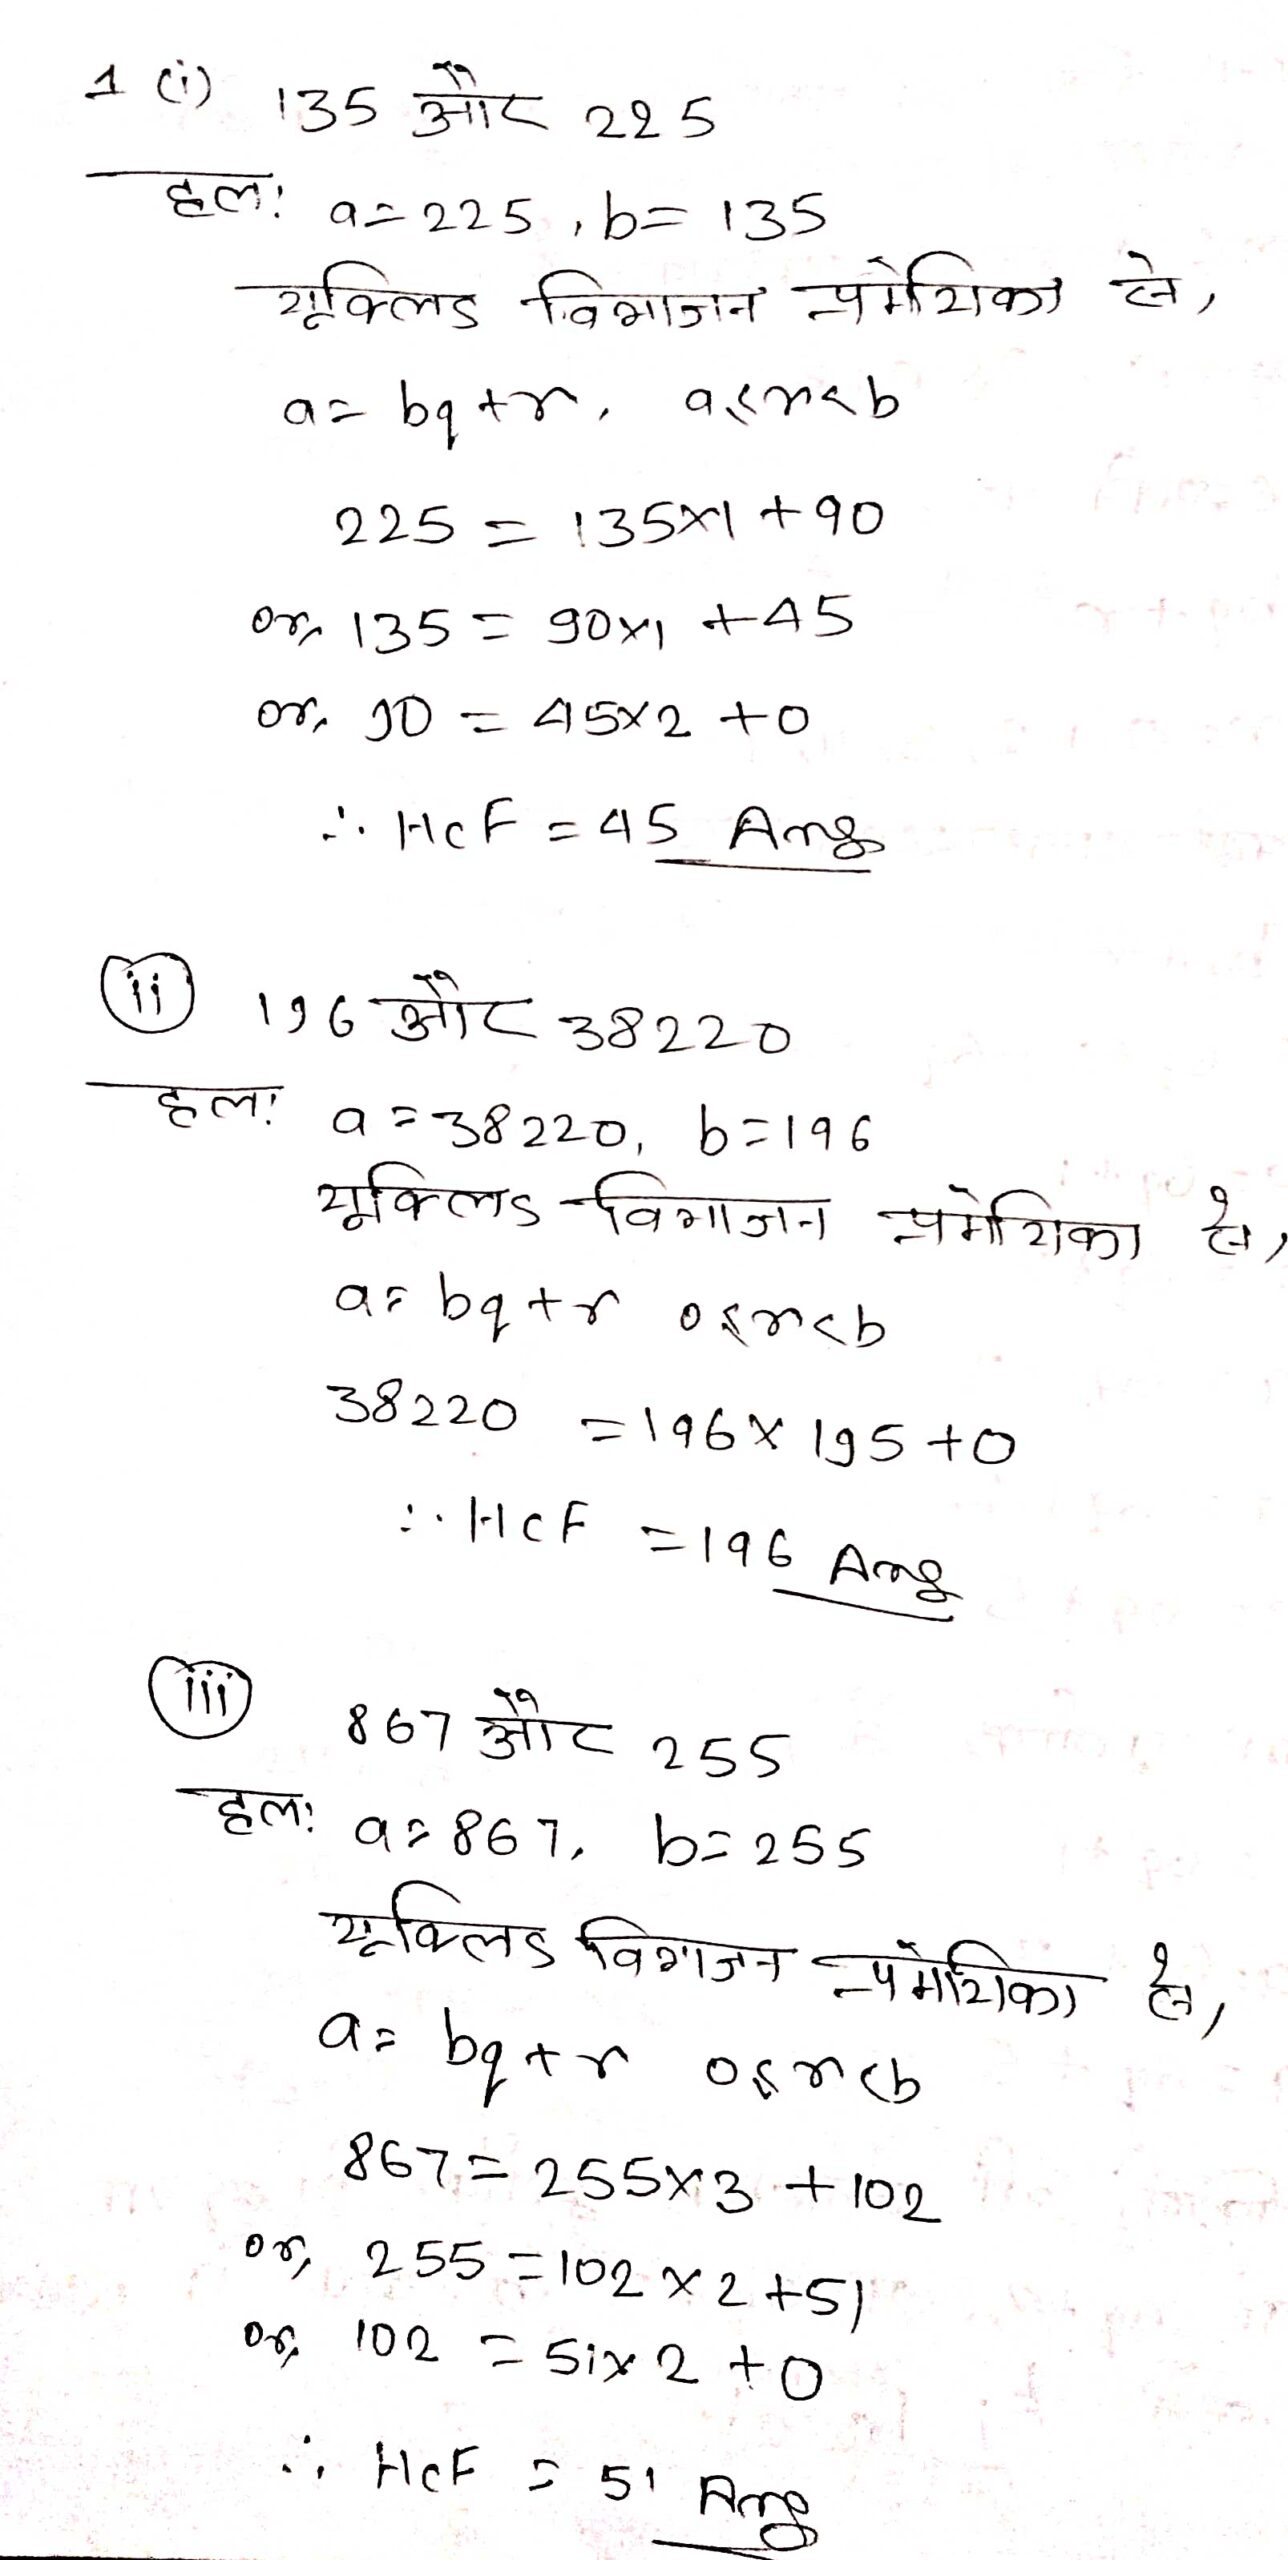 1 (i) 135 और 225
हल: a = 225, b = 135
यूक्लिड विभाजन प्रमेयिका से,
a = bq + r, a ≤ r < b
225 = 135×1 + 90
or, 135 = 90×1 + 45
or, 90 = 45×2 + 0
∴ HCF = 45 Ans
(ii) 196 और 38220
हल: a = 38220, b = 196
यूक्लिड विभाजन प्रमेयिका से,
a = bq + r 0 ≤ r < b
38220 = 196 × 195 + 0
∴ HCF = 196 Ans
(iii) 867 और 255
हल: a = 867, b = 255
यूक्लिड विभाजन प्रमेयिका से,
a = bq + r 0 ≤ r < b
867 = 255×3 + 102
or, 255 = 102 × 2 + 51
or, 102 = 51× 2 + 0
∴ HCF = 51 Ans